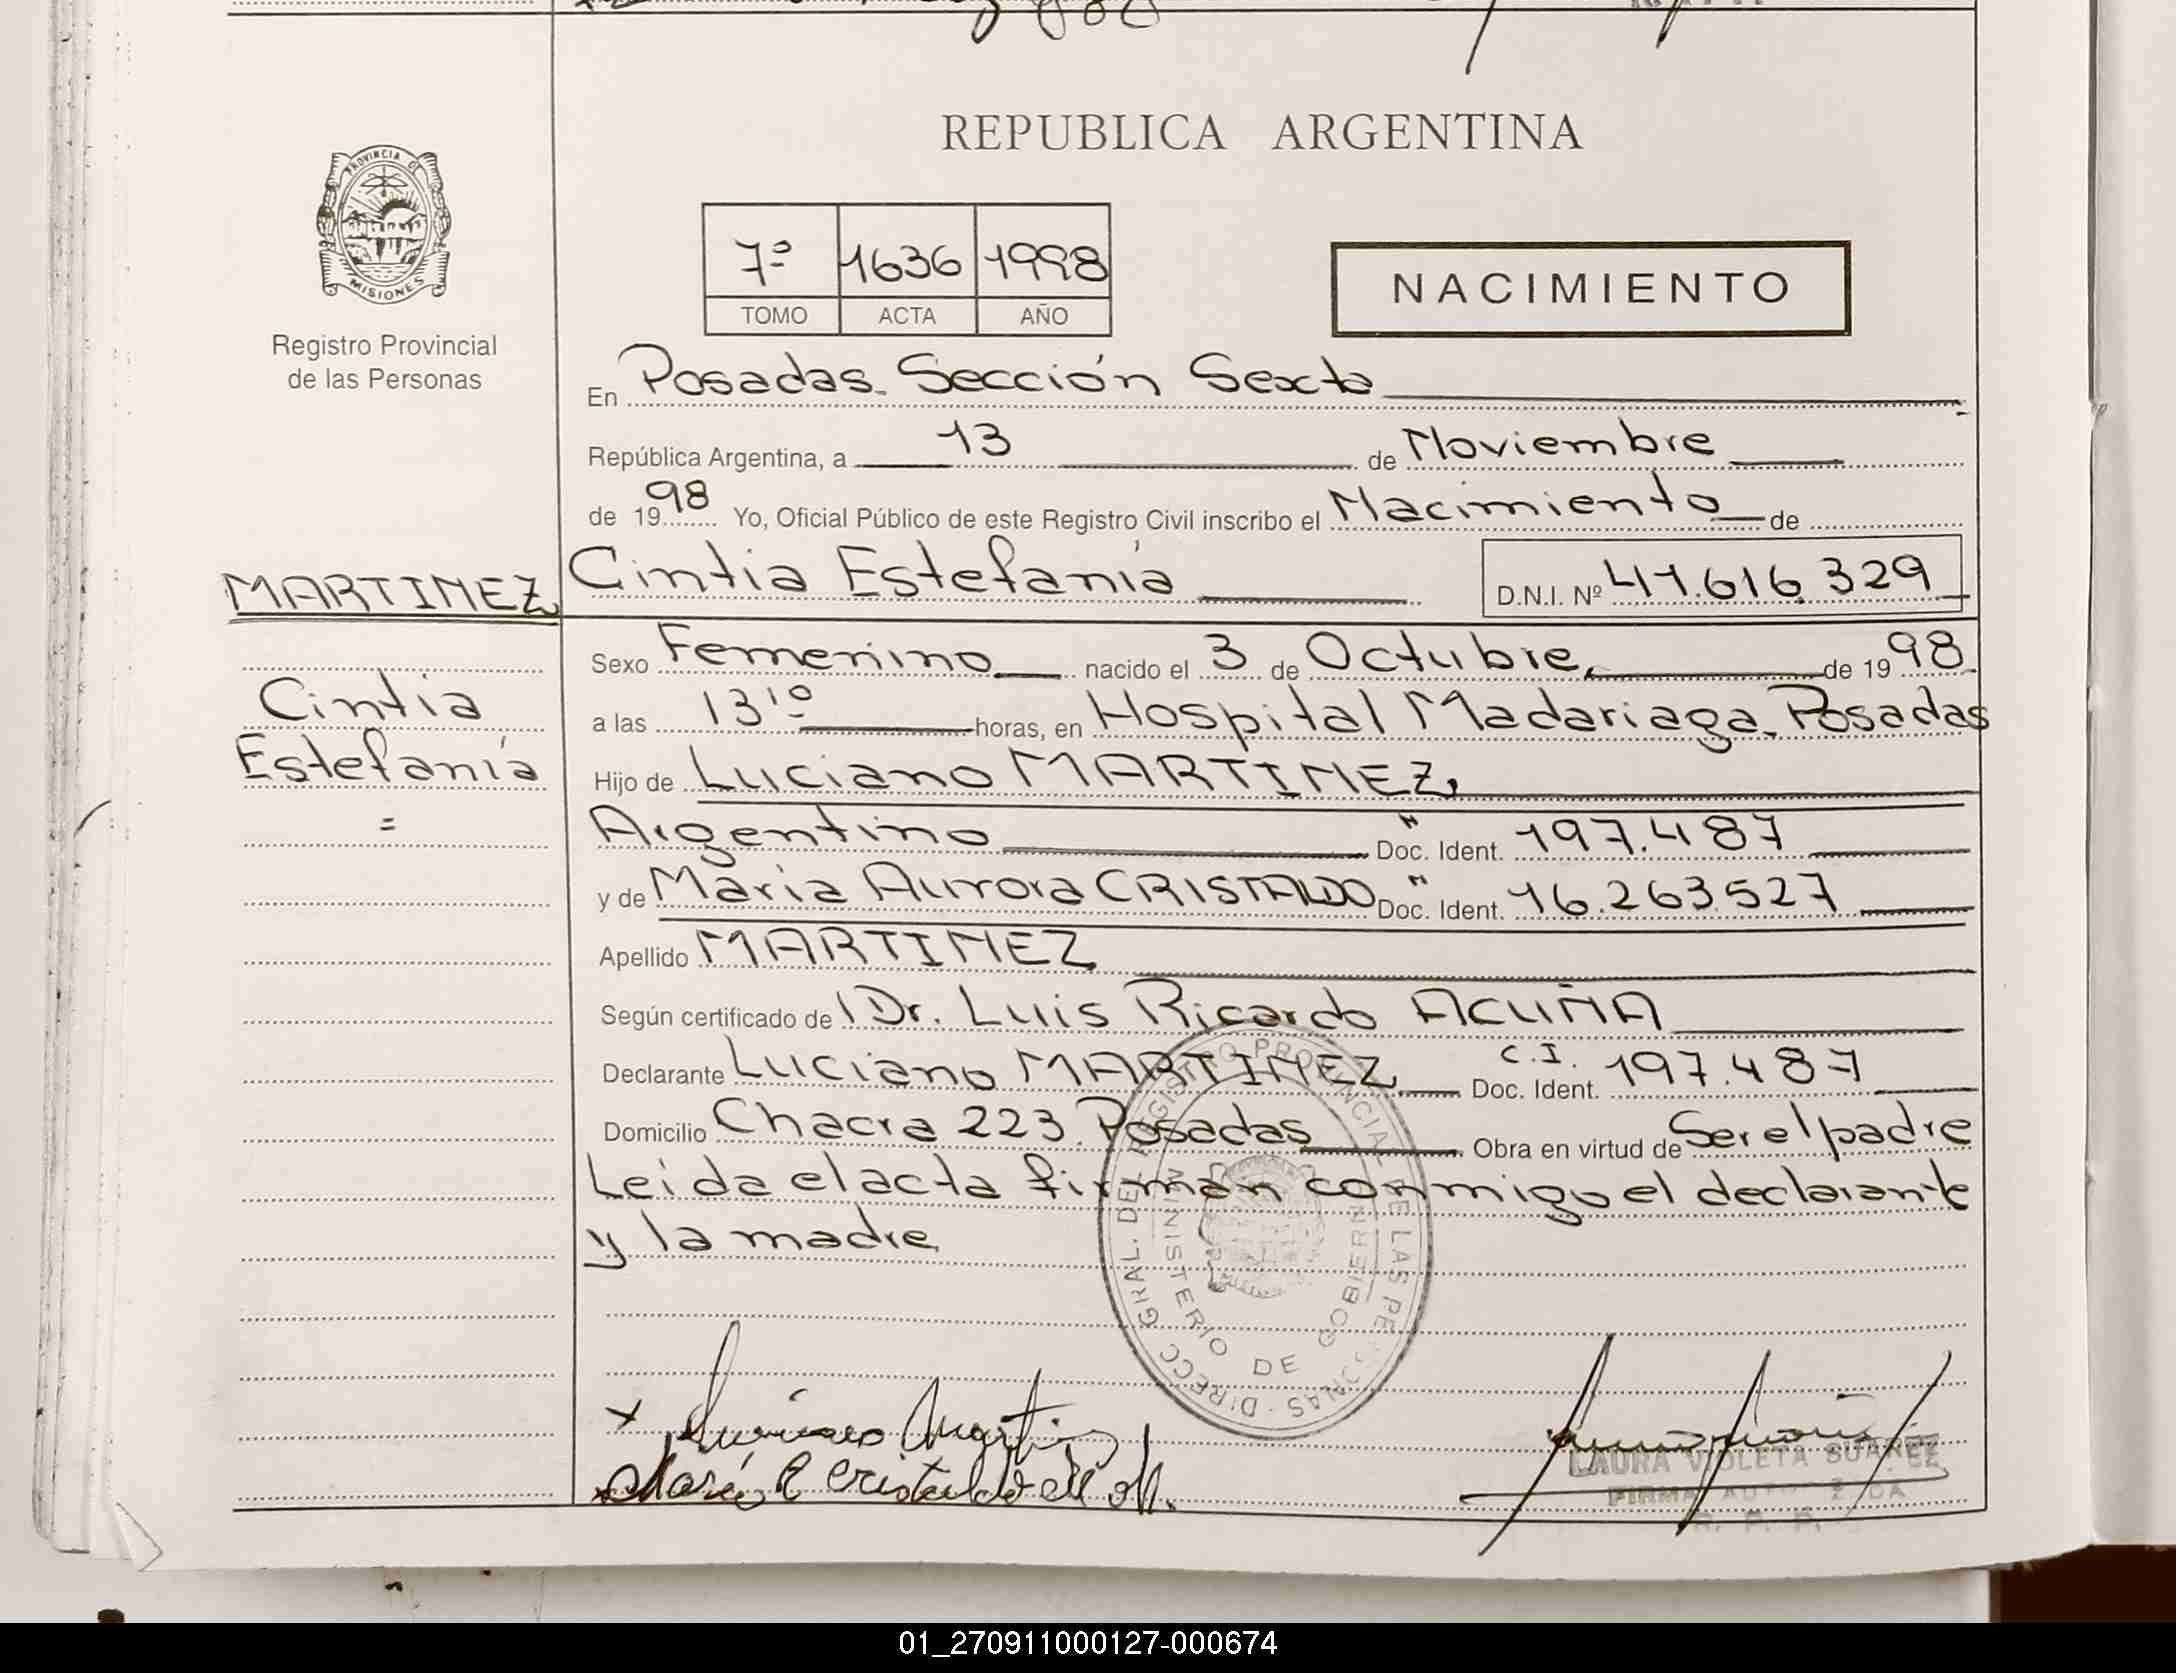 REPUBLICA ARGENTINA
PROVINCIA DE
MISIONES
Registro Provincial
de las Personas
7º 1636 1998
TOMO ACTA AÑO
NACIMIENTO
En Posadas. Sección Sexta
República Argentina, a 13 de Noviembre
de 1998 Yo, Oficial Público de este Registro Civil inscribo el Nacimiento de
MARTINEZ, Cintia Estefanía D.N.I. Nº 41.616.329
Cintia
Estefanía
=
Sexo Femenino nacido el 3 de Octubre, de 1998.
a las 13'º horas, en Hospital Madariaga. Posadas
Hijo de Luciano MARTINEZ,
Argentino " Doc. Ident. 197.487
y de María Aurora CRISTALDO " Doc. Ident. 16.263.527
Apellido MARTINEZ
Según certificado de Dr. Luis Ricardo ACUÑA
Declarante Luciano MARTINEZ C.I. Doc. Ident. 197.487
Domicilio Chacra 223. Posadas Obra en virtud de Ser el padre
Leida el acta firman conmigo el declarante
y la madre
DIRECC. GRAL. DEL REGISTRO PROVINCIAL DE LAS PERSONAS
MINISTERIO DE GOBIERNO
x Luciano Martinez
x María A Cristaldo de M.
LAURA VIOLETA SUAREZ
FIRMA AUTORIZADA
R. P. P.
01_270911000127-000674